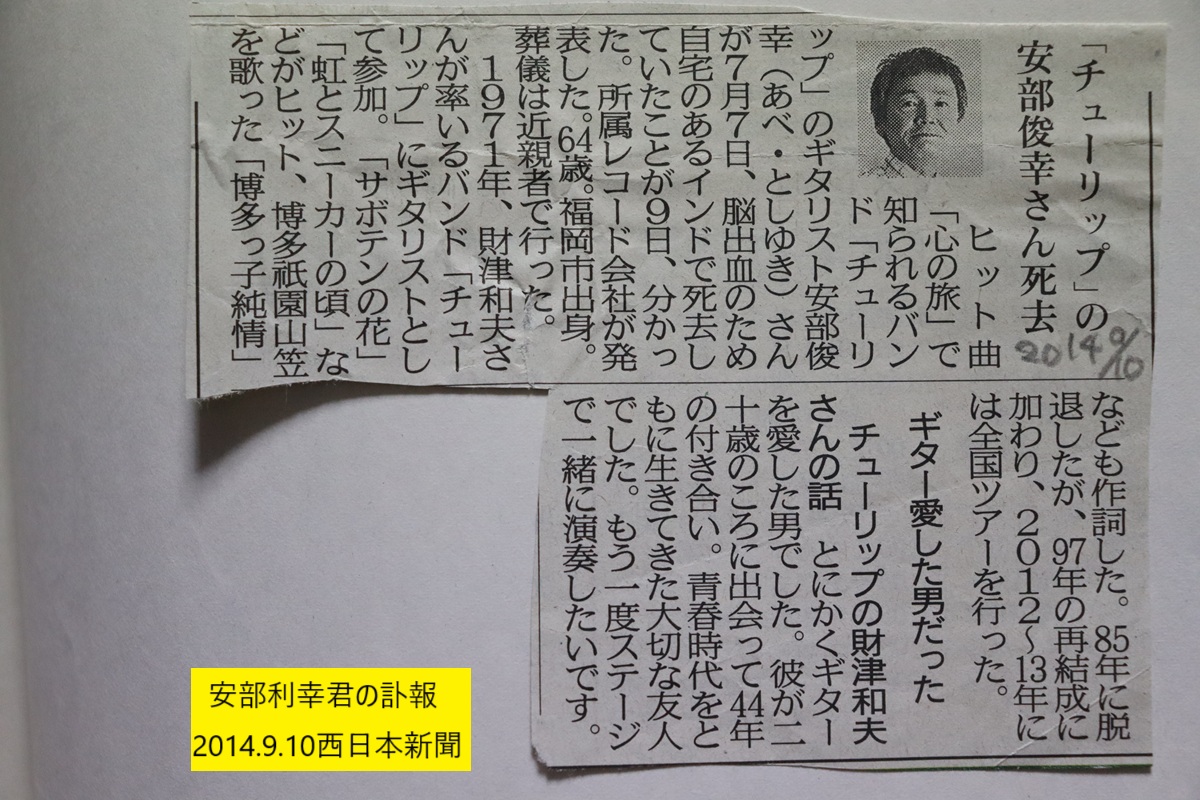 「チューリップ」の
安部俊幸さん死去
2014 9/10
ヒット曲
「心の旅」で
知られるバン
ド「チューリ
ップ」のギタリスト安部俊
幸（あべ・としゆき）さん
が7月7日、脳出血のため
自宅のあるインドで死去し
ていたことが9日、分かっ
た。所属レコード会社が発
表した。64歳。福岡市出身。
葬儀は近親者で行った。
１９７１年、財津和夫さ
んが率いるバンド「チュー
リップ」にギタリストとし
て参加。「サボテンの花」
「虹とスニーカーの頃」な
どがヒット、博多祇園山笠
を歌った「博多っ子純情」
なども作詞した。85年に脱
退したが、97年の再結成に
加わり、２０１２〜13年に
は全国ツアーを行った。
ギター愛した男だった
チューリップの財津和夫
さんの話　とにかくギター
を愛した男でした。彼が二
十歳のころに出会って44年
の付き合い。青春時代をと
もに生きてきた大切な友人
でした。もう一度ステージ
で一緒に演奏したいです。
安部利幸君の訃報
2014.9.10西日本新聞